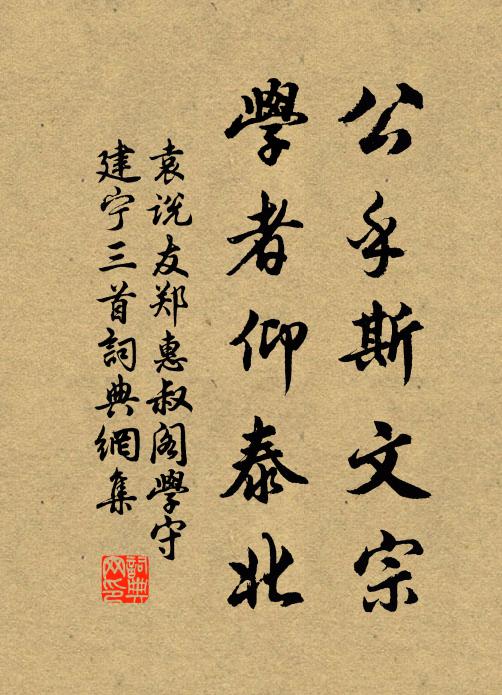 公乎斯文宗
學者仰泰北
袁说友郑惠叔阁學守
建宁三首詞典網集
詞典
网印